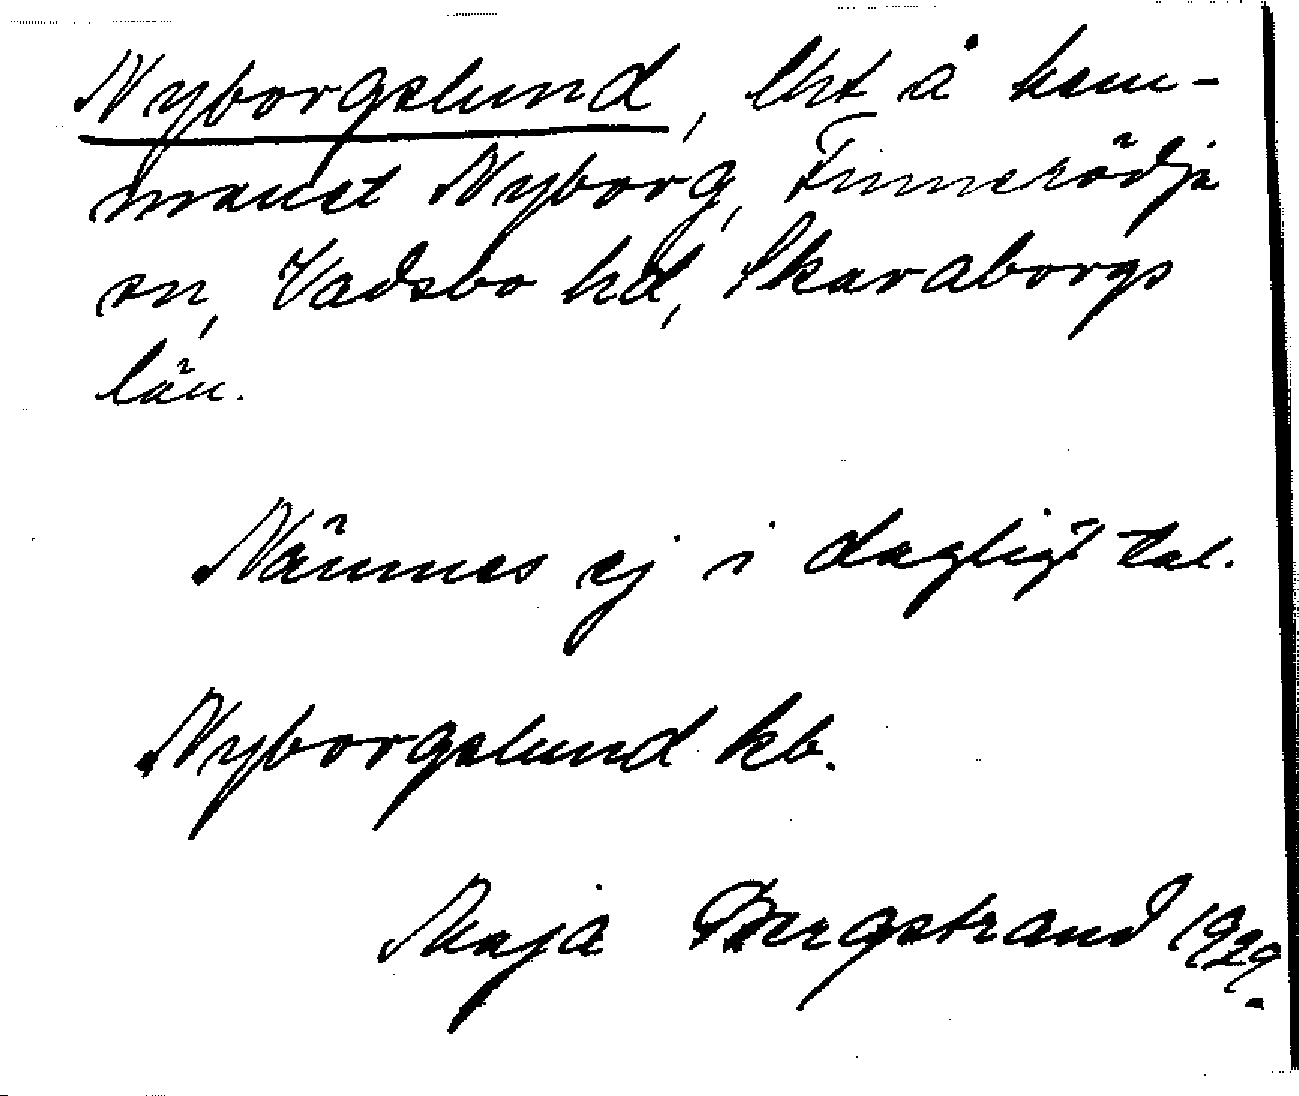 Nyborgslund, lht å hem-
manet Nyborg, Finnerödja
sn, Vadsbo hd, Skaraborgs
län.
Nämnes ej i dagligt tal.
Nyborgslund kb.
Maja Bergstrand 1929.